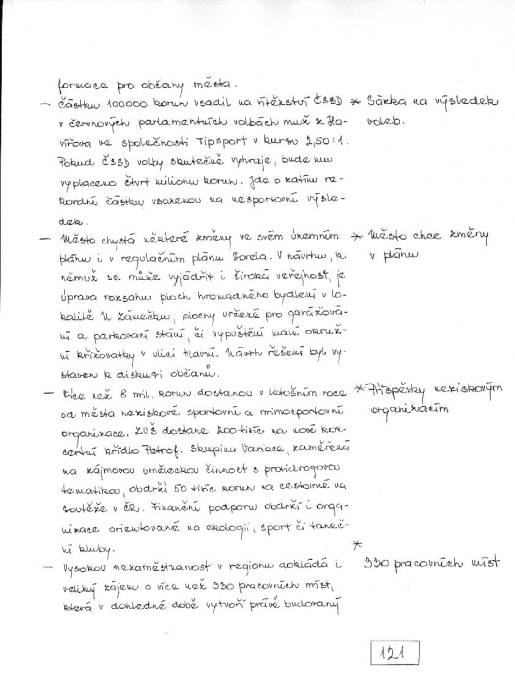 formace pro občany města.
– Částku 100000 korun vsadil na vítězství ČSSD
v červnových parlamentních volbách muž z Ha-
vířova ve společnosti Tipsport v kursu 2,50:1.
Pokud ČSSD volby skutečně vyhraje, bude mu
vyplaceno čtvrt milionu korun. Jde o zatím re-
kordní částku vsazenou na nesportovní výsle-
dek.
* Sázka na výsledek
voleb.
– Město chystá některé změny ve svém územním
plánu i v regulačním plánu Sorela. V návrhu, k
němuž se může vyjádřit i široká veřejnost, je
úprava rozsahu ploch hromadného bydlení v lo-
kalitě U Zámečku, plochy určené pro garážová-
ní a parkovací stání, či vypuštění malé okruž-
ní křižovatky v ulici Hlavní. Návrh řešení byl vy-
staven k diskusi občanů.
* Město chce změny
v plánu
– Více než 8 mil. korun dostanou v letošním roce
od města neziskové sportovní a mimosportovní
organizace. ZUŠ dostane 200 tisíc na nové kon-
certní křídlo Petrof. Skupina Variace, zaměřená
na zájmovou uměleckou činnost s protidrogovou
tematikou, obdrží 50 tisíc korun na cestovné na
soutěže v ČR. Finanční podporu obdrží i orga-
nizace orientované na ekologii, sport či taneč-
ní kluby.
* Příspěvky neziskovým
organizacím
– Vysokou nezaměstnanost v regionu dokládá i
veliký zájem o více než 330 pracovních míst,
která v dohledné době vytvoří právě budovaný
*
330 pracovních míst
121